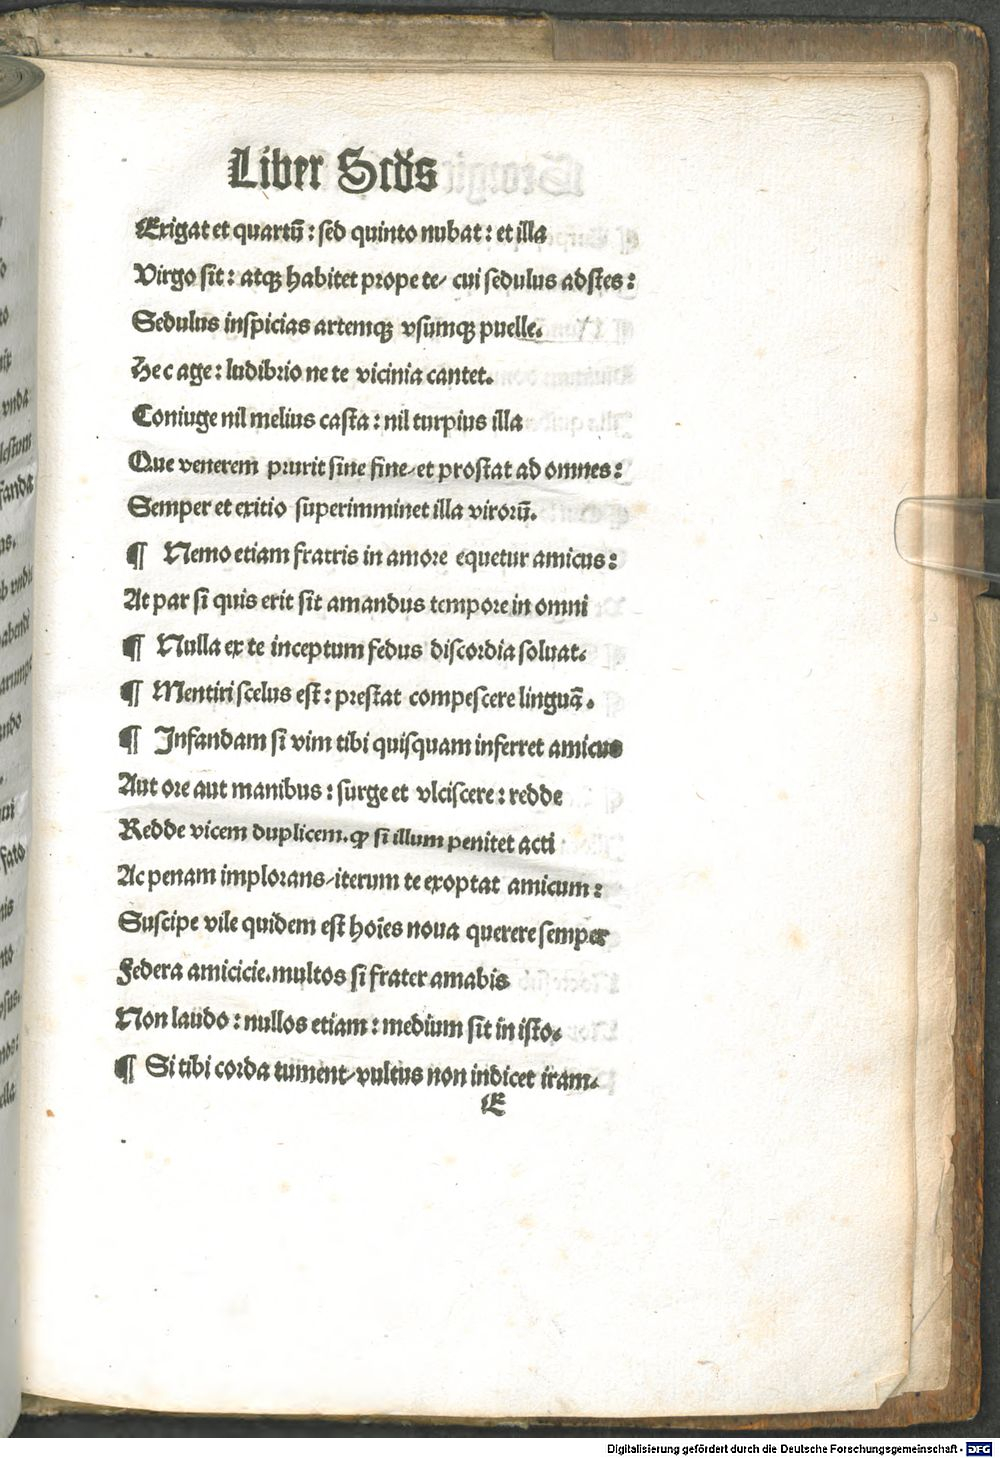 Liber Scd̕s
Exigat et quartū : sed quinto nubat : et illa
Virgo sit : atqꝫ habitet prope te/ cui sedulus adstes :
Sedulus inspicias artemqꝫ vsumqꝫ puelle.
Hec age : ludibrio ne te vicinia cantet.
Coniuge nil melius casta : nil turpius illa
Que venerem prurit sine fine/ et prostat ad omnes :
Semper et exitio superimminet illa virorū.
¶ Nemo etiam fratris in amore equetur amicus :
At par si quis erit sit amandus tempore in omni
¶ Nulla ex te inceptum fedus discordia soluat.
¶ Mentiri scelus est : prestat compescere linguā.
¶ Infandam si vim tibi quisquam inferret amicus
Aut ore aut manibus : surge et vlciscere : redde
Redde vicem duplicem. ꝙ si illum penitet acti
Ac penam implorans/ iterum te exoptat amicum :
Suscipe vile quidem est hoīes noua querere semper
Federa amicicie. multos si frater amabis
Non laudo : nullos etiam : medium sit in isto.
¶ Si tibi corda tument/ vultus non indicet iram.
E
Digitalisierung gefördert durch die Deutsche Forschungsgemeinschaft - DFG